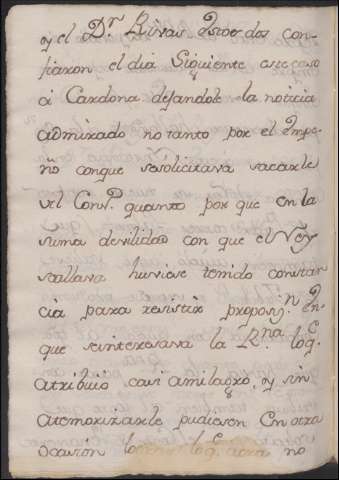 y el D.r Rivas Estoe dos con-
fiaron el dia Siguiente este caso
â Cardona dejandole la noticia
admirado no tanto por el Empe-
ño conque sesolicitava sacarle
del Conv.to quanto por que en la
suma devilidad con que el Rey
sallava huviese tenido constan
cia para resistir proposiz.n En-
que seinteresava la R.na loq.e
atribuio casi amilagro, y sin
atemorizarle pudiesen En otra
ocasion loq.e no